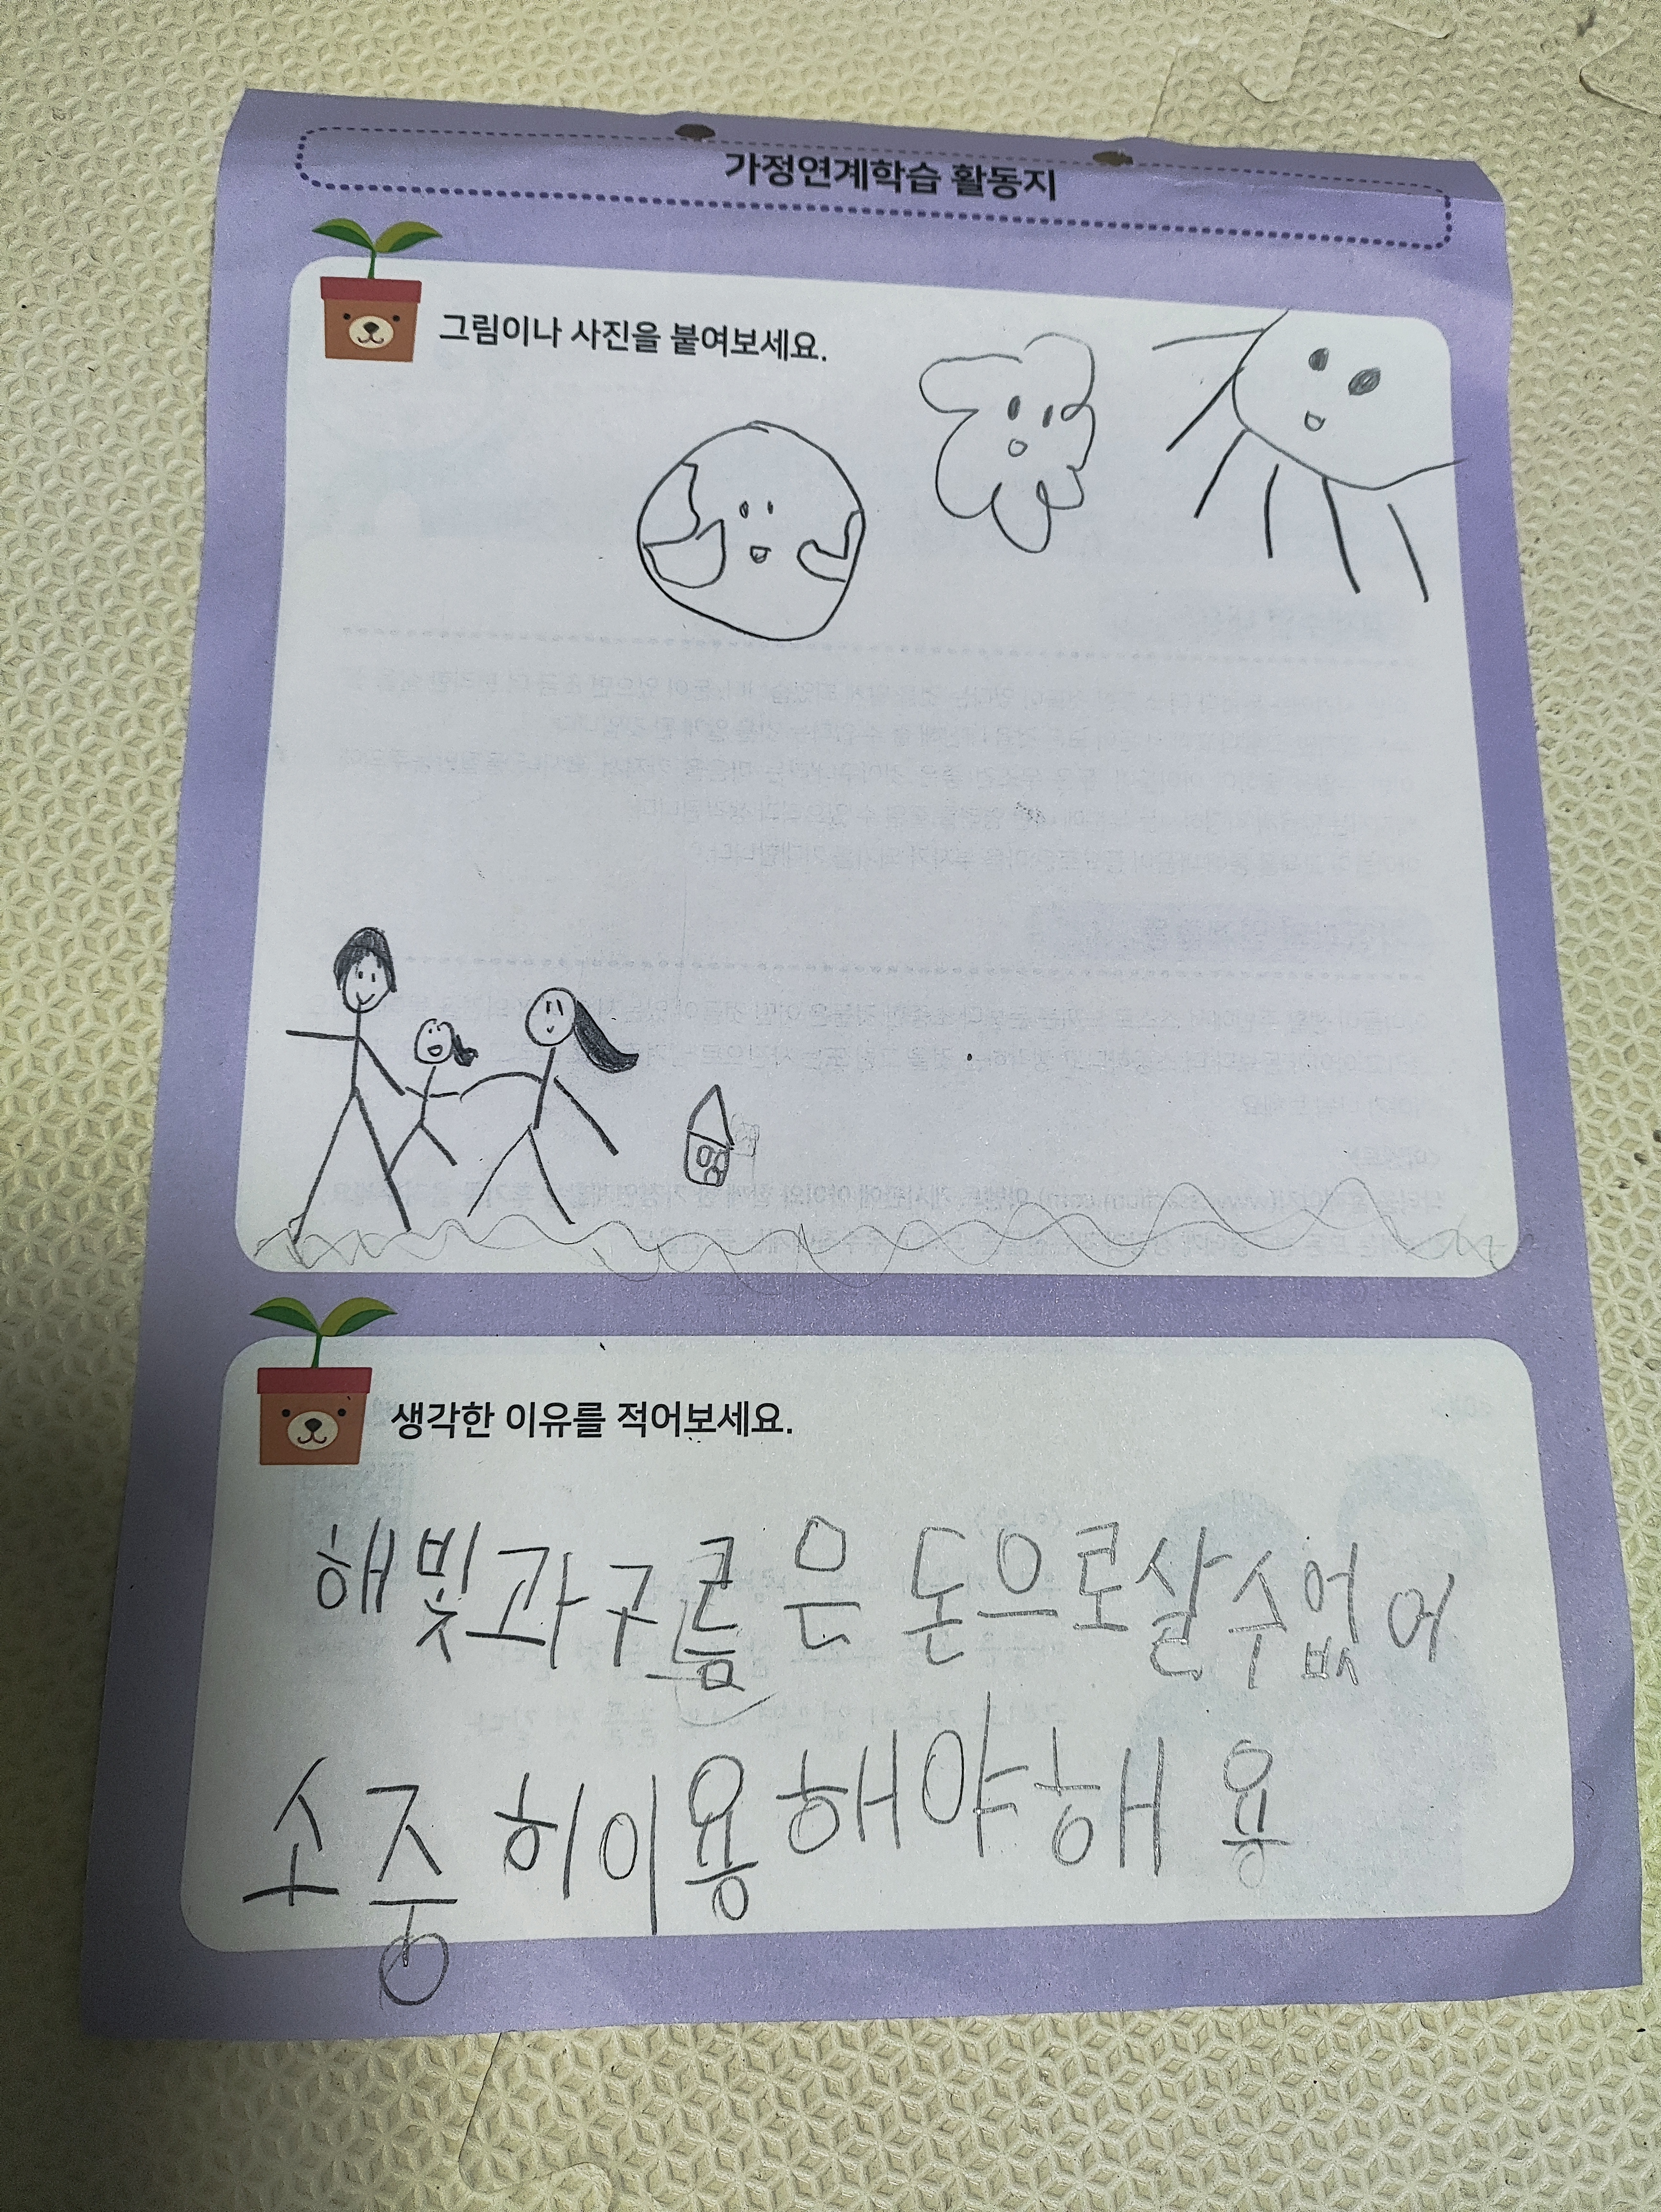 가정연계학습 활동지
그림이나 사진을 붙여보세요.
생각한 이유를 적어보세요.
해빛과구름은 돈으로살수없어
소중히이용해야해용